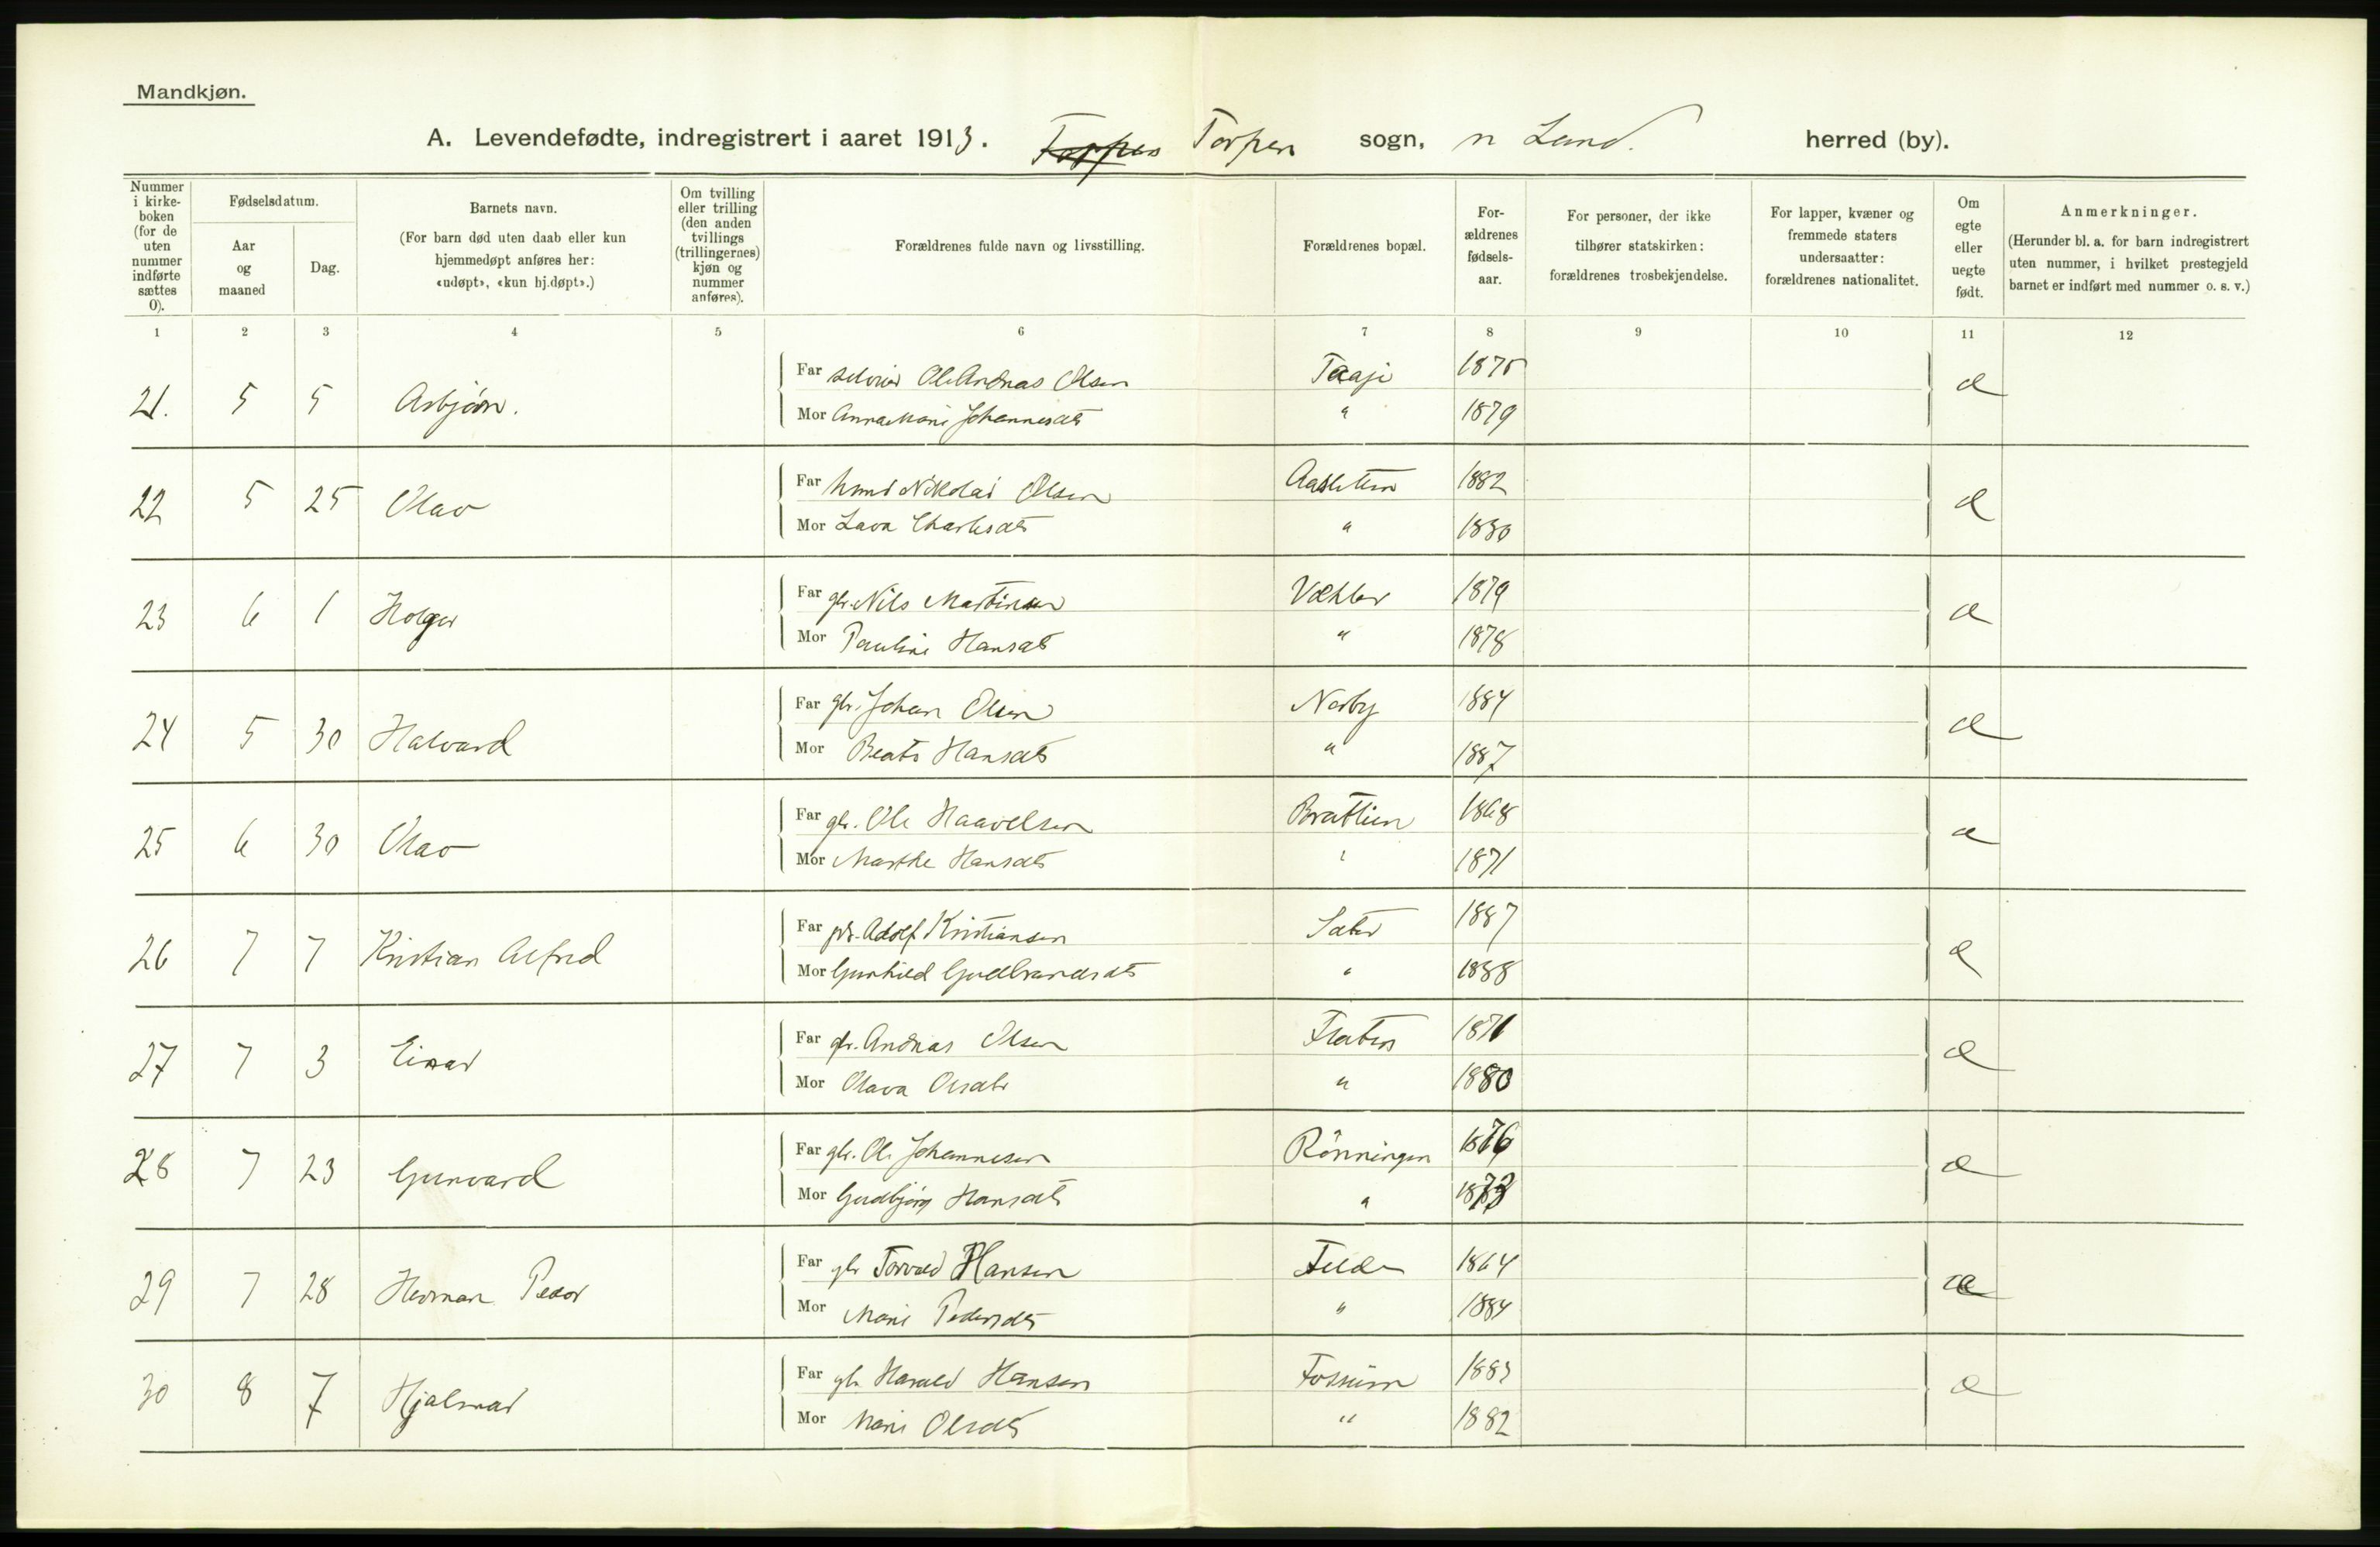 Mandkjøn.
A. Levendefødte, indregistrert i aaret 1913. Torpen Torpen sogn, n Land. herred (by).
Nummer i kirke-boken (for de uten nummer indførte sættes 0).
Fødselsdatum.
Aar og maaned
Dag.
Barnets navn.
(For barn død uten daab eller kun hjemmedøpt anføres her: «udøpt», «kun hj.døpt».)
Om tvilling eller trilling (den anden tvillings (trillingernes) kjøn og nummer anføres).
Forældrenes fulde navn og livsstilling.
Forældrenes bopæl.
For-ældrenes fødsels-aar.
For personer, der ikke tilhører statskirken: forældrenes trosbekjendelse.
For lapper, kvæner og fremmede staters undersaatter: forældrenes nationalitet.
Om egte eller uegte født.
Anmerkninger.
(Herunder bl. a. for barn indregistrert uten nummer, i hvilket prestegjeld barnet er indført med nummer o. s. v.)
1 2 3 4 5 6 7 8 9 10 11 12
21. 5 5 Asbjørn. Far Ole Andreas Olsen 1875 e
Mor Anna Marie Johannesdt " 1879
22 5 25 Olav Far Nikolai Olsen Aasletten 1882 e
Mor Lava Charlesdt " 1880
23 6 1 Holger Far gbr. Nils Martinsen 1879 e
Mor Pauline Hansdt " 1878
24 5 30 Halvard Far gbr. Johan Olsen Nørby 1884 e
Mor Beate Hansdt " 1887
25 6 30 Olav Far gbr. Ole Haavelsen Brattlien 1868 e
Mor Marthe Hansdt " 1871
26 7 7 Kristian Alfred Far Adolf Kristiansen Sæter 1887 e
Mor Gunhild Gudbrandsdt " 1888
27 7 3 Einar Far gbr. Andreas Olsen 1871 e
Mor Olava Olsdt " 1880
28 7 23 Gunvard Far gbr. Ole Johannesen Rönningen 1876 e
Mor Gudbjørg Hansdt " 1873
29 7 28 Herman Peder Far gbr Torvald Hansen 1864 e
Mor Marie Pedersdt " 1884
30 8 7 Hjalmar Far gbr. Harald Hansen Fossum 1883 e
Mor Marie Olsdt " 1882